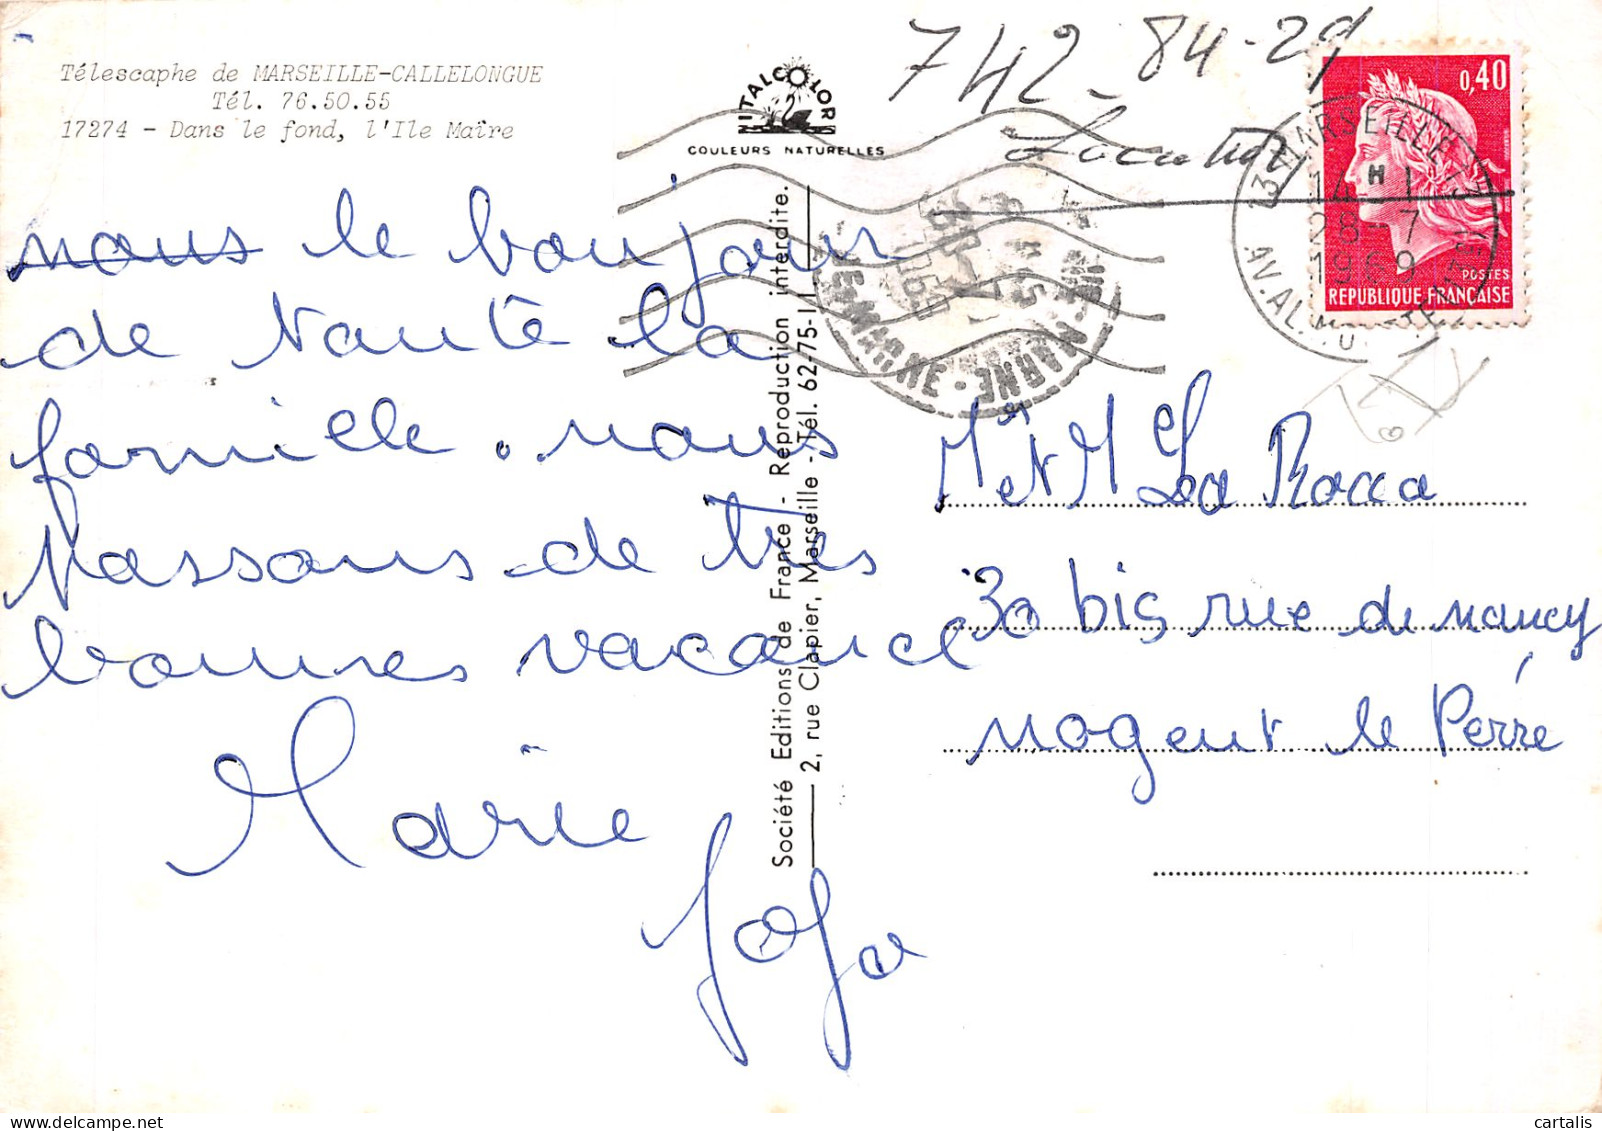 Télescaphe de MARSEILLE-CALLELONGUE
Tél. 76.50.55
17274 - Dans le fond, l'Ile Maïre
ITALCOLOR
COULEURS NATURELLES
742-84-29
0,40
POSTES
REPUBLIQUE FRANÇAISE
13 MARSEILLE 13
14 H
28-7
1969
JE-MARNE
MARNE
nous le bonjour
de Nauté la
famille. nous
Passons de très
bonnes vacance
Marie
Jojo
Société Editions de France - Reproduction interdite.
2, rue Clapier, Marseille - Tél. 62-75-11
Mr et M La Rocca
30 bis rue de nancy
nogent le Perré
cartalis